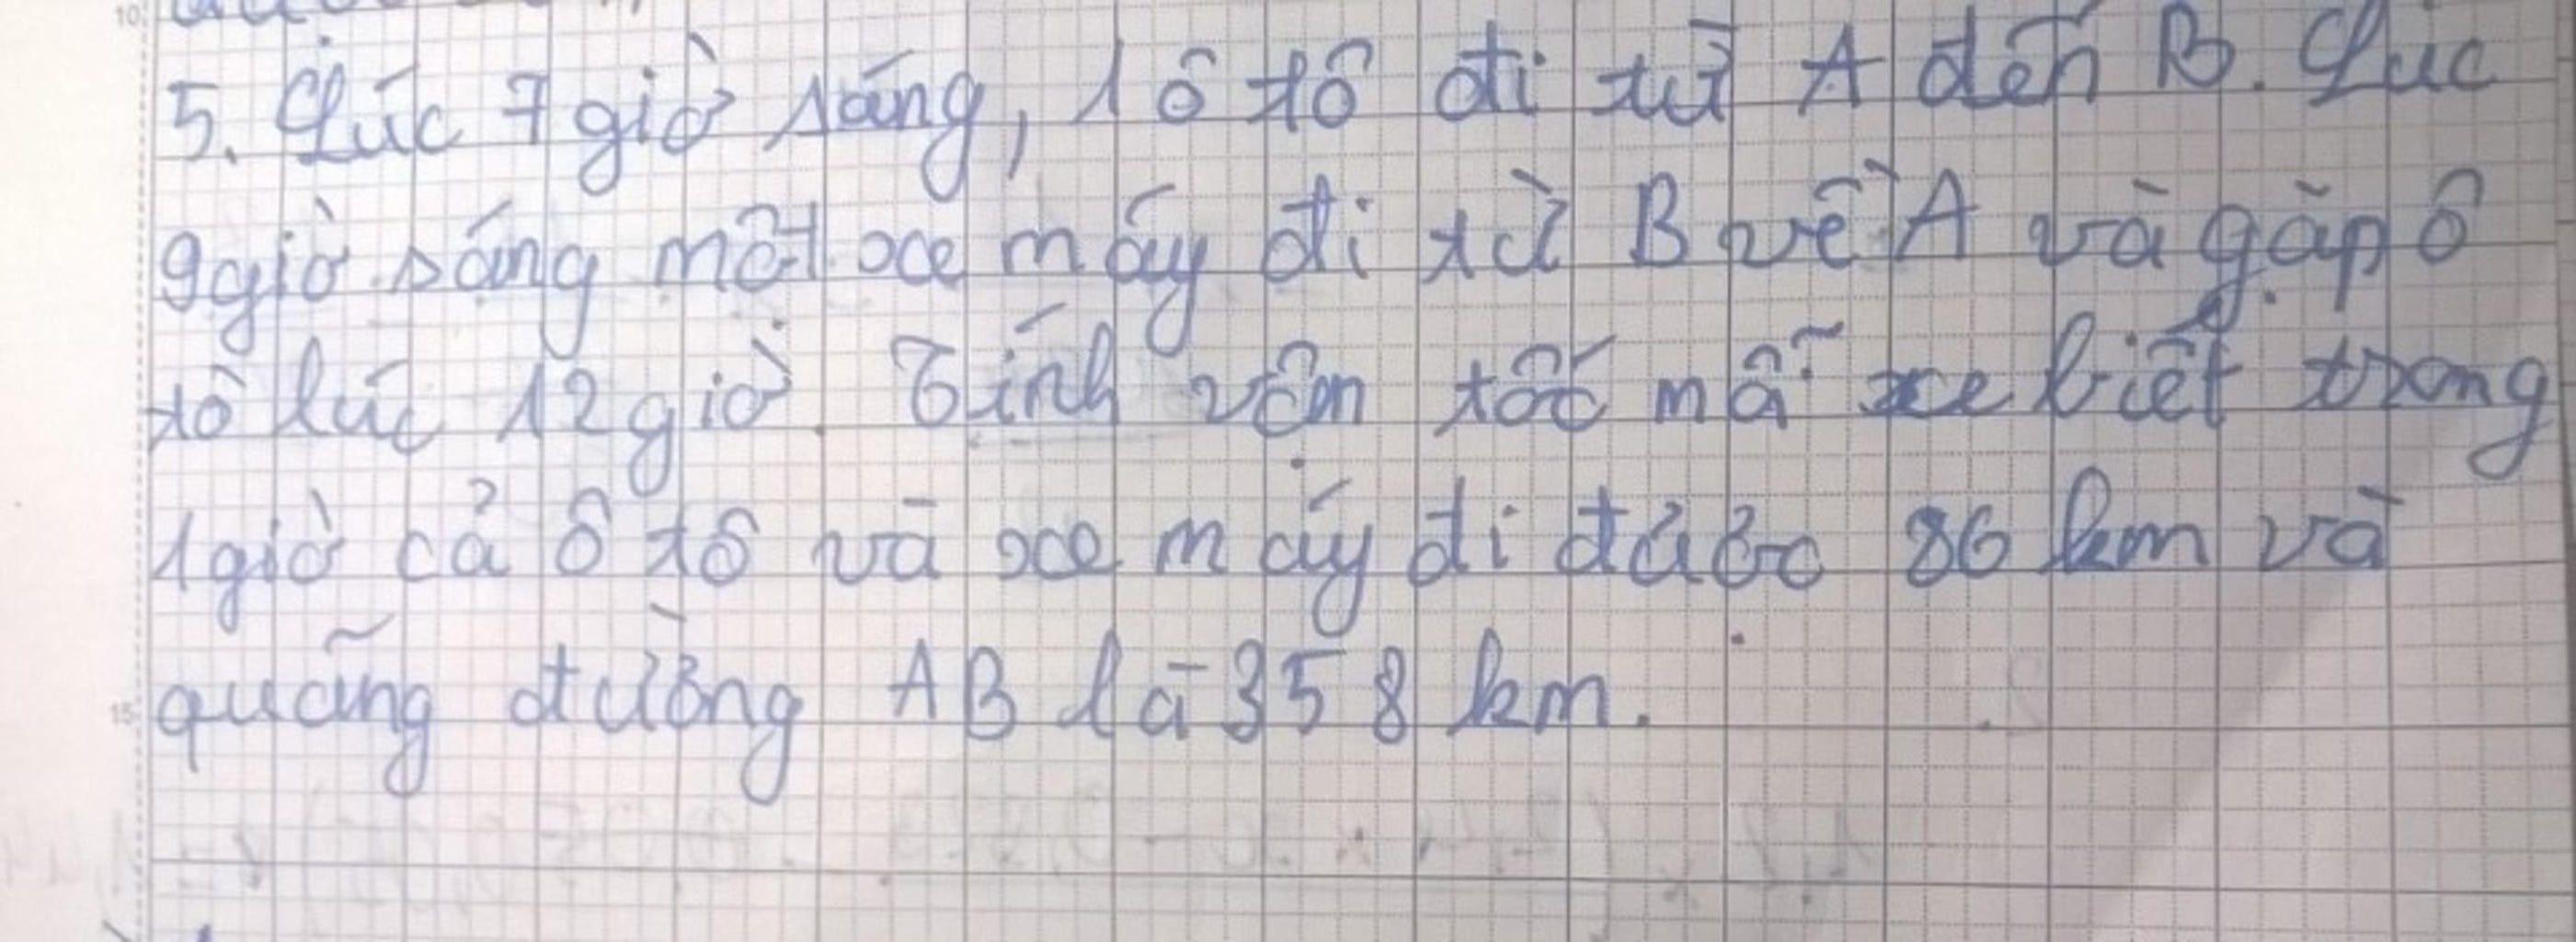 5. Lúc 7 giờ sáng, 1 ô tô đi từ A đến B. Lúc
9 giờ sáng một xe máy đi từ B về A và gặp ô
tô lúc 12 giờ. Tính vận tốc mỗi xe biết trong
1 giờ cả ô tô và xe máy đi được 86 km và
quãng đường AB là 358 km.